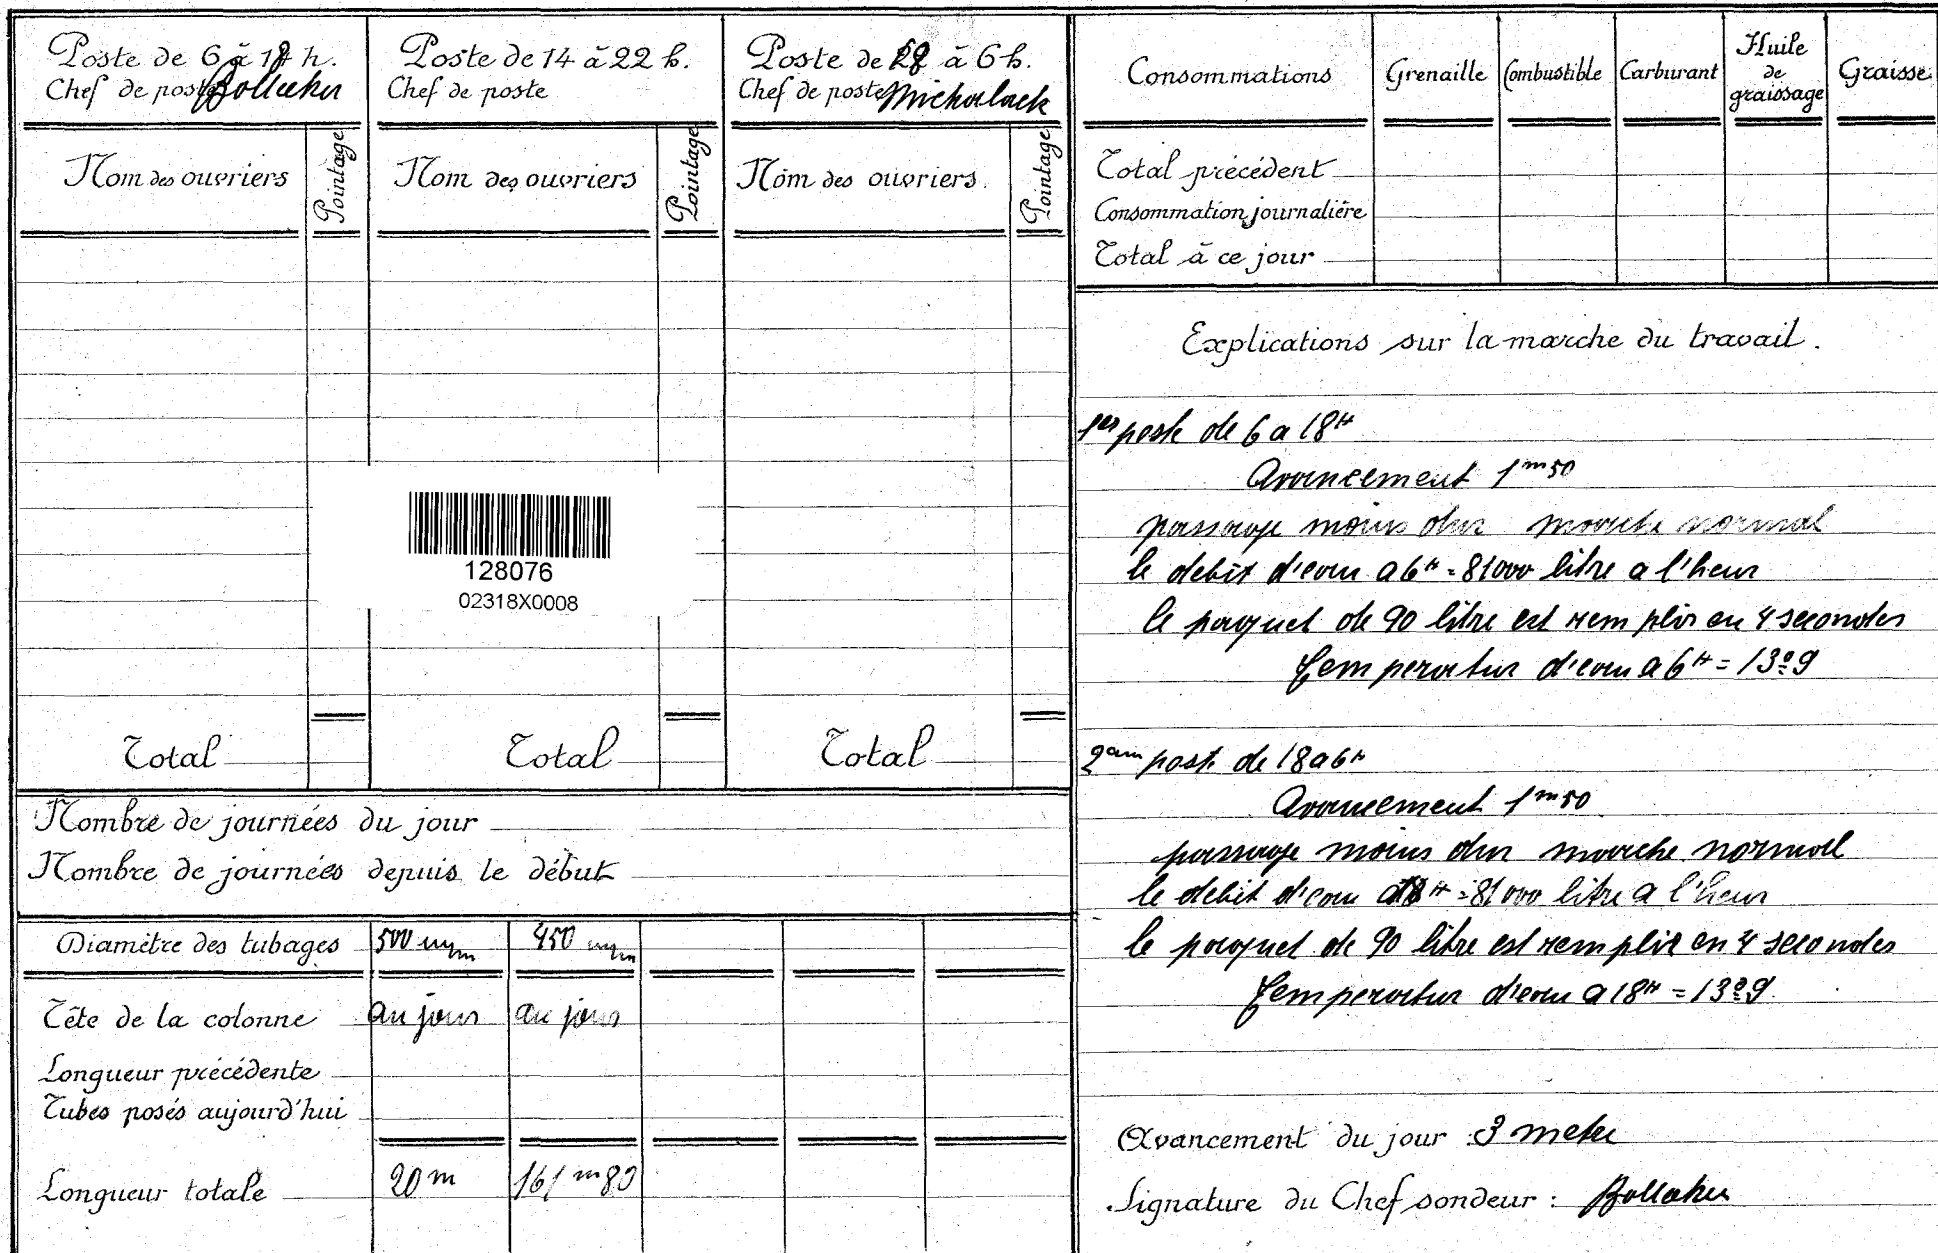 Poste de 6 à 18 h.
Chef de poste Bollecker
Poste de 14 à 22 h.
Chef de poste
Poste de 18 à 6 h.
Chef de poste Michalack
Nom des ouvriers
Pointage
Nom des ouvriers
Pointage
Nom des ouvriers
Pointage
128076
02318X0008
Total
Total
Total
Nombre de journées du jour
Nombre de journées depuis le début
Diamètre des tubages 500 mm 450 mm
Tête de la colonne au jour au jour
Longueur précédente
Tubes posés aujourd'hui
Longueur totale 20 m 161 m 80
Consommations Grenaille Combustible Carburant Huile de graissage Graisse
Total précédent
Consommation journalière
Total à ce jour
Explications sur la marche du travail.
1er poste de 6 a 18 H
Avancement 1 m 50
passage moins dur marche normal
le debit d'eau a 6 H = 81000 litre a l'heur
le paquet de 90 litre est remplir en 4 secondes
Temperatur d'eau a 6 H = 13°9
2 em post. de 18 a 6 H
Avancement 1 m 50
passage moins dur marche normall
le debit d'eau a 18 H = 81000 litre a l'heur
le paquet de 90 litre est remplir en 4 secondes
Temperatur d'eau a 18 H = 13°9
Avancement du jour : 3 metre
Signature du Chef sondeur : Bollecker